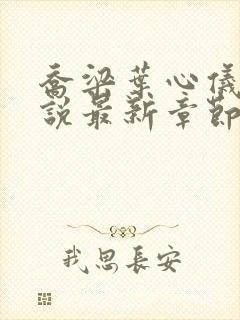 喬梁葉心儀
說最新章節
我思長安